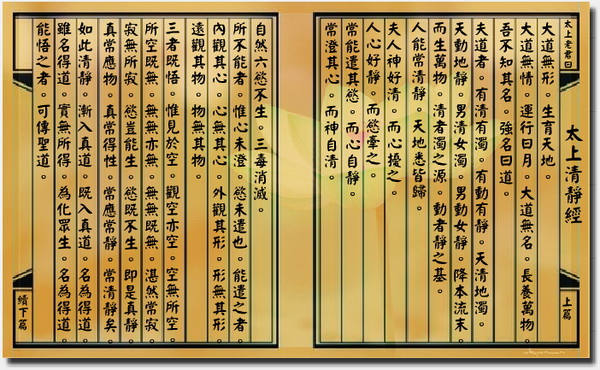 太上老君曰
太上清靜經
上篇
大道無形。生育天地。
大道無情。運行日月。大道無名。長養萬物。
吾不知其名。強名曰道。
夫道者。有清有濁。有動有靜。天清地濁。
天動地靜。男清女濁。男動女靜。降本流末。
而生萬物。清者濁之源。動者靜之基。
人能常清靜。天地悉皆歸。
夫人神好清。而心擾之。
人心好靜。而慾牽之。
常能遣其慾。而心自靜。
常澄其心。而神自清。
自然六慾不生。三毒消滅。
所不能者。惟心未澄。慾未遣也。能遣之者。
內觀其心。心無其心。外觀其形。形無其形。
遠觀其物。物無其物。
三者既悟。惟見於空。觀空亦空。空無所空。
所空既無。無無亦無。無無既無。湛然常寂。
寂無所寂。慾豈能生。慾既不生。即是真靜。
真常應物。真常得性。常應常靜。常清靜矣。
如此清靜。漸入真道。既入真道。名為得道。
雖名得道。實無所得。為化眾生。名為得道。
能悟之者。可傳聖道。
續下篇